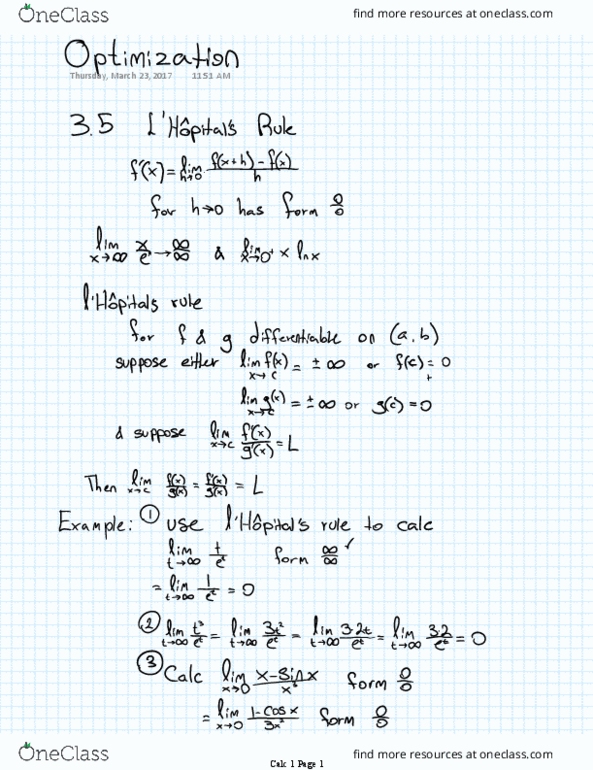 OneClass find more resources at oneclass.com
Optimization
Thursday, March 23, 2017 11:51 AM
3.5 L'Hôpital's Rule
f'(x) = lim h→0 f(x+h) - f(x) / h
for h→0 has form 0/0
lim x→∞ x/eˣ → ∞/∞ & lim x→0⁺ x lnx
l'Hôpitals rule
for f & g differentiable on (a, b)
suppose either lim x→c f(x) = ±∞ or f(c) = 0
+
lim x→c g(x) = ±∞ or g(c) = 0
& suppose lim x→c f'(x)/g'(x) = L
Then lim x→c f(x)/g(x) = f'(x)/g'(x) = L
Example: ① use l'Hôpital's rule to calc
lim t→∞ t/eᵗ form ∞/∞ ✓
= lim t→∞ 1/eᵗ = 0
② lim t→∞ t³/eᵗ = lim t→∞ 3t²/eᵗ = lim t→∞ 3·2t/eᵗ = lim t→∞ 3·2/eᵗ = 0
③ Calc lim x→0 x-sinx/x³ form 0/0
= lim x→0 1-cosx/3x² form 0/0
OneClass find more resources at oneclass.com
Calc 1 Page 1